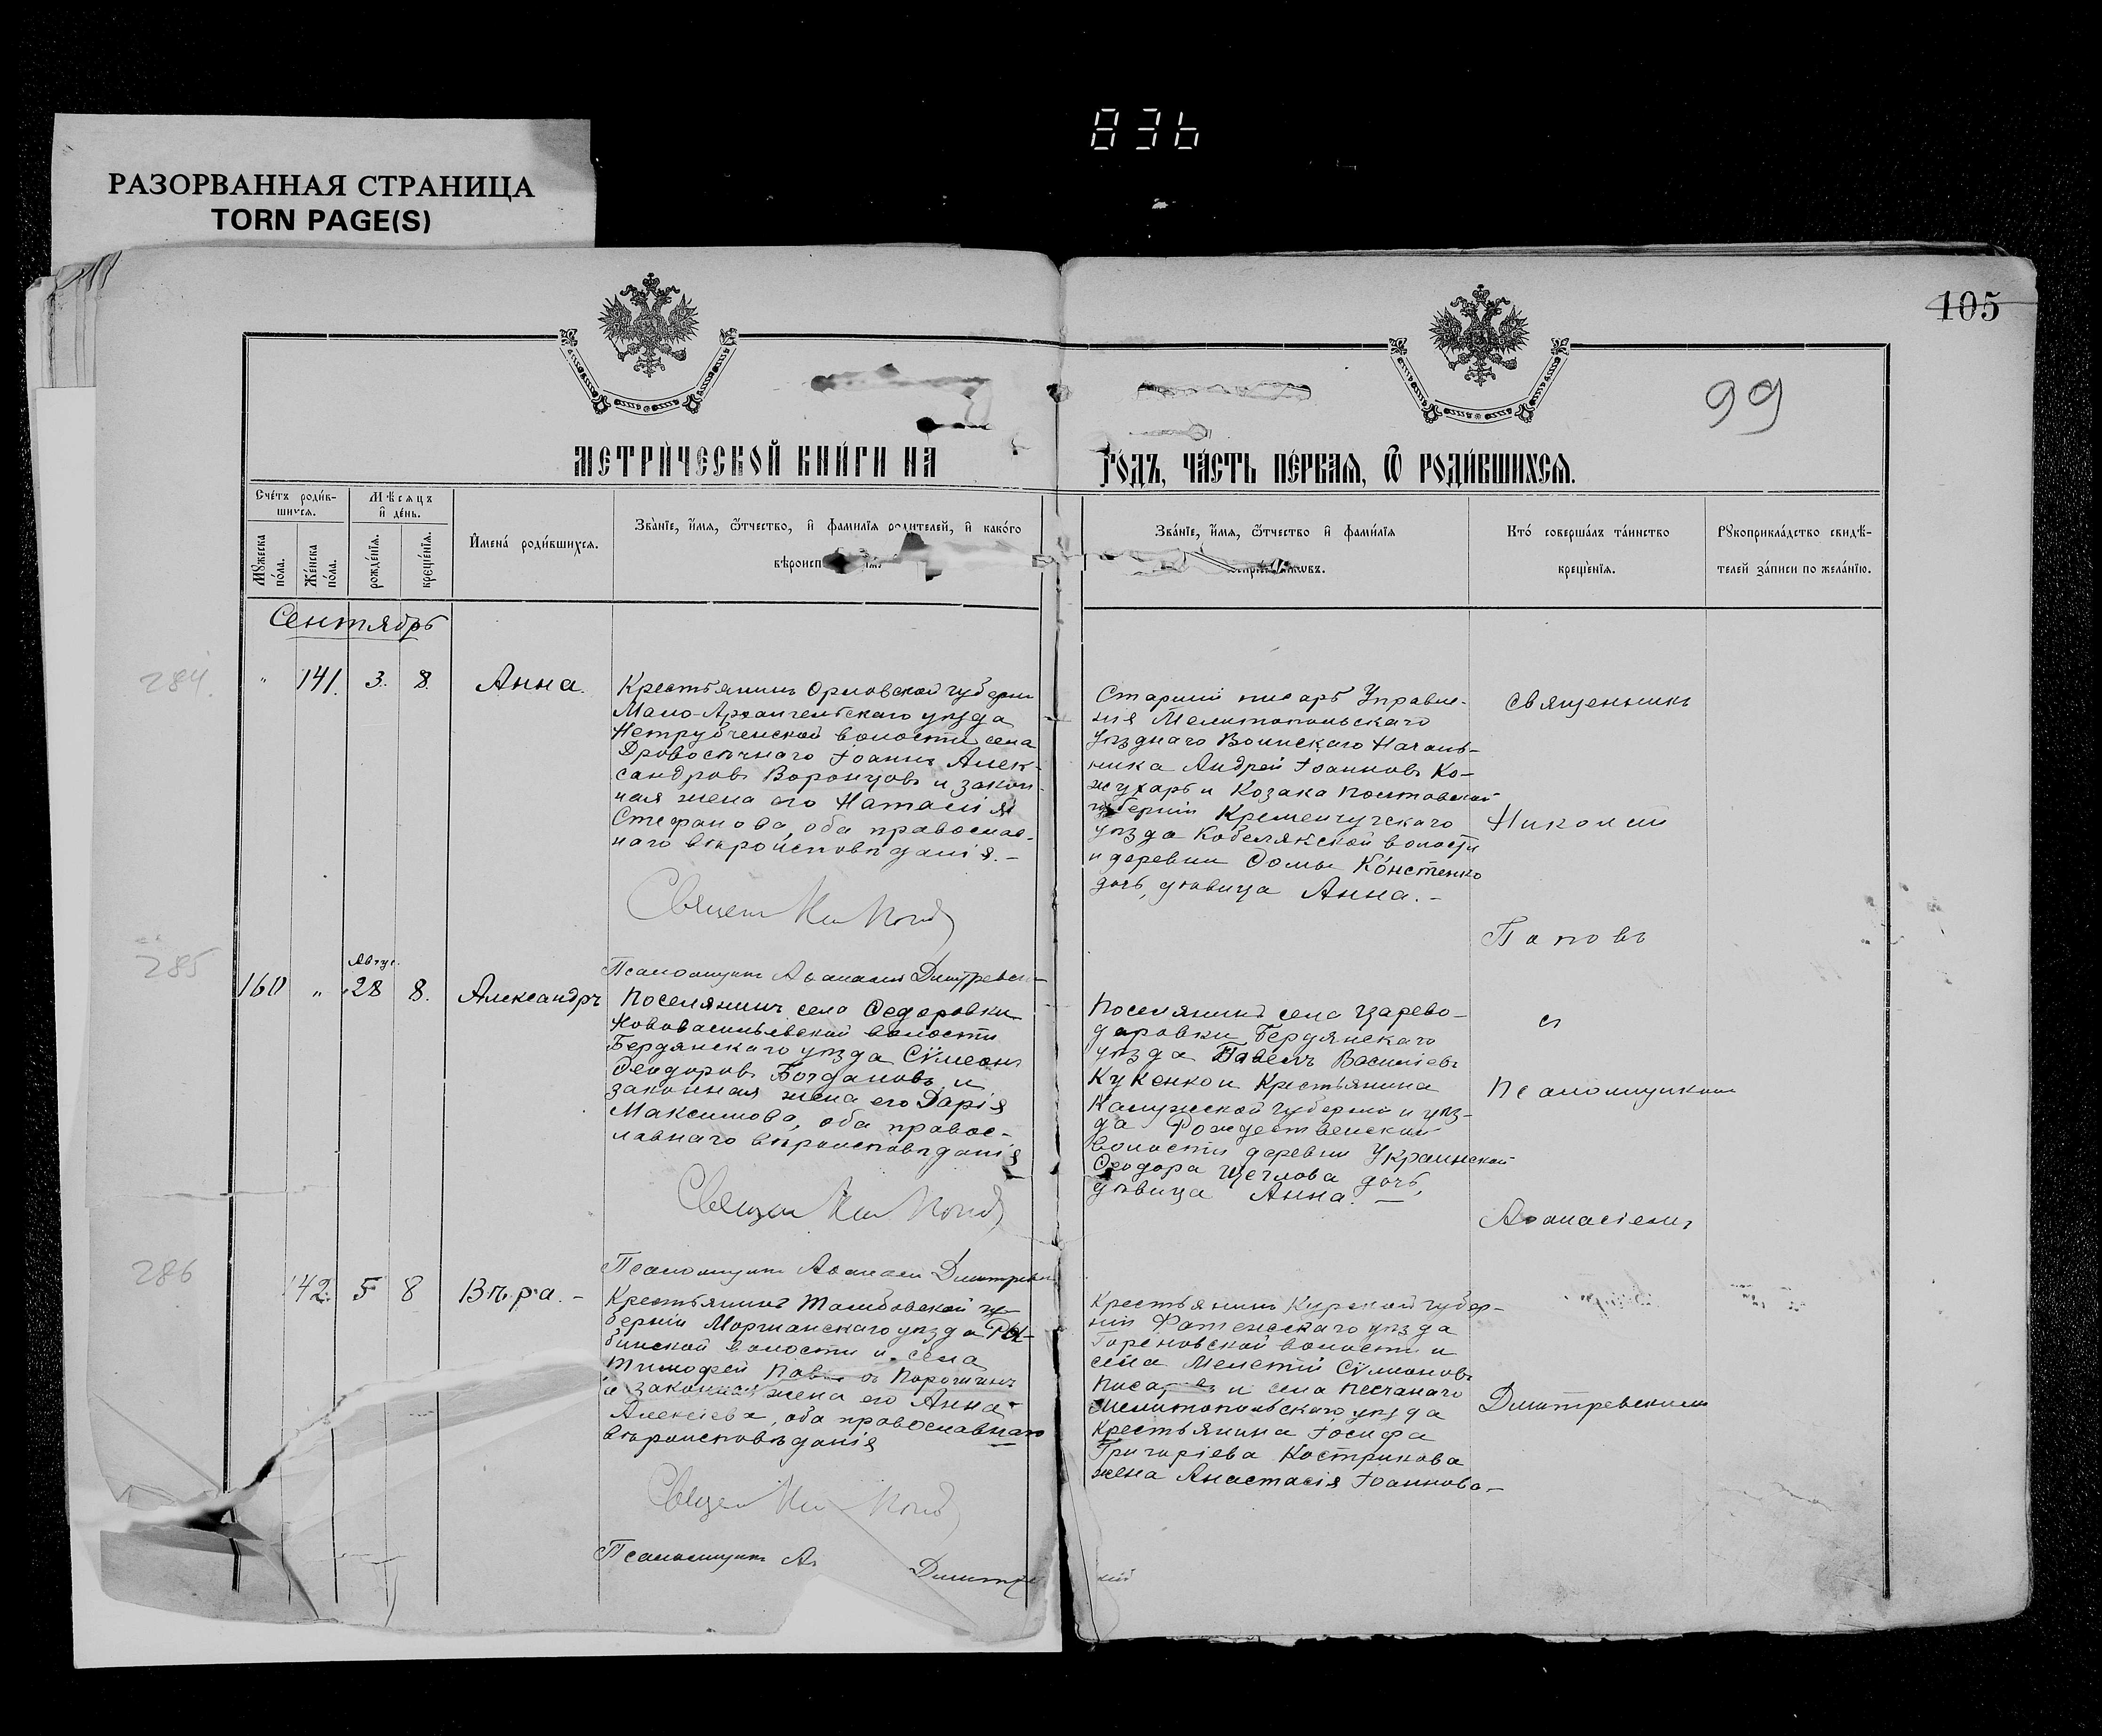 836
РАЗОРВАННАЯ СТРАНИЦА
TORN PAGE(S)
105
99
МЕТРИ́ЧЕСКОЙ КНИ́ГИ НА
ГО́ДЪ, ЧА́СТЬ ПЕ́РВАЯ, Ѿ РОДИ́ВШИХСЯ.
Сче́тъ роди́в-
шихся.
Мѣсяцъ
и҆ де́нь.
Мꙋжеска
по́ла.
Же́нска
по́ла.
рожде́нїя.
креще́нїя.
И҆мена́ роди́вшихся.
Зва́нїе, и҆́мя, ѻ҆́тчество, и҆ фами́лїя родителей, и҆ како́го
вѣроисп
Зва́нїе, и҆́мя, ѻ҆́тчество и҆ фами́лїя
Кто́ соверша́лъ та́инство
креще́нїя.
Рꙋкоприкла́дство свидѣ́-
телей за́писи по жела́нїю.
Сентябрь
284.
" 141. 3. 8. Анна.
Крестьянинъ Орловской губерни
Мало-Архангельскаго уѣзда
Нетрубченской волости села
Дровосѣчнаго Іоаннъ Алек-
сандровъ Воронцовъ и закон-
ная жена его Наталія
Стефанова, оба православ-
наго вѣроисповѣданія. -
Священ Ник Попов
Псаломщикъ Аѳанасій Димитревскій
Старшій писарь Управле-
нія Мелитопольскаго
Уѣзднаго Воинскаго Началь-
ника Андрей Іоанновъ Ко-
жухарь и Козака Полтавской
губерніи Кременчугскаго
уѣзда Кобелякской волости
и деревни Ѳомы Костенко
дочь, дѣвица Анна. -
Священникъ
Николай
Поповъ
съ
Псаломщикомъ
Аѳанасіемъ
Димтревскимъ
285
160 " Авгус. 28 8. Александръ
Поселянинъ села Ѳедоровки
Нововасильевской волости
Бердянскаго уѣзда Сѵмеонъ
Ѳеодоровъ Богдановъ и
законная жена его Дарія
Максимова, оба правос-
лавнаго вѣроисповѣданія
Священ Ник Попов
Псаломщикъ Аѳанасій Димитревскій
Поселянинъ села Царево-
даровки Бердянскаго
уѣзда Павелъ Василіевъ
Кукенко и Крестьянина
Калужской губерніи и уѣз-
да Рождественской
волости деревни Украинской
Ѳеодора Щеглова дочь,
дѣвица Анна. -
286
142. 5 8 Вѣра. -
Крестьянинъ Тамбовской гу-
берніи Моршанскаго уѣзда Ры-
бинской волости и села
Тимофей Пав въ Порошинъ
и законная жена его Анна
Алексіева, оба православнаго
вѣроисповѣданія
Священ Ник Попов
Псаломщикъ Аѳ Димитре кій
Крестьянинъ Курской губер-
ніи Фатежскаго уѣзда
Горѣновской волости и
села Мелетій Сѵмеоновъ
Писаревъ и села Песчанаго
Мелитопольскаго уѣзда
Крестьянина Іосифа
Григоріева Кострикова
жена Анастасія Іоаннова. -